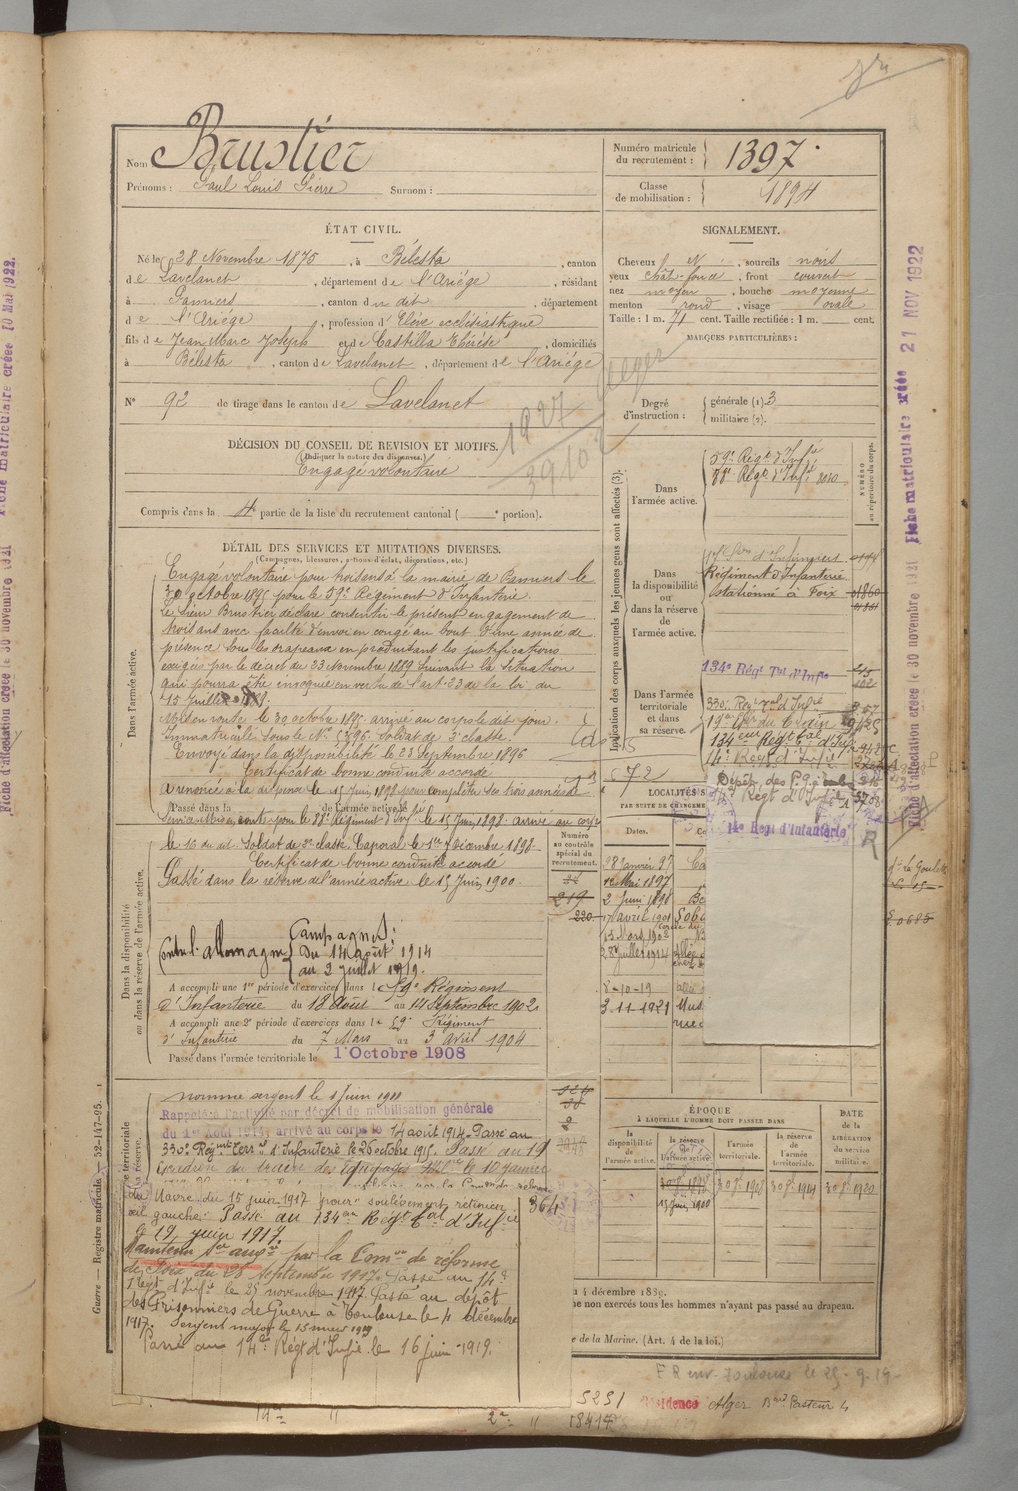 Nom Brustier
Prénoms : Paul Louis Pierre Surnom :
Numéro matricule du recrutement : 1397
Classe de mobilisation : 1894
ÉTAT CIVIL.
Né le 28 Novembre 1875, à Bélesta, canton
de Lavelanet, département de l'Ariège, résidant
à Pamiers, canton du dit, département
de l'Ariège, profession d'Elève ecclésiastique
fils de Jean Marc Joseph et de Castilla Thérèse, domiciliés
à Bélesta, canton de Lavelanet, département de l'Ariège
N° 92 de tirage dans le canton de Lavelanet
SIGNALEMENT.
Cheveux N, sourcils noirs
yeux chât-foncé, front couvert
nez moyen, bouche moyenne
menton rond, visage ovale
Taille : 1 m. 71 cent. Taille rectifiée : 1 m. cent.
MARQUES PARTICULIÈRES :
Degré d'instruction : générale (1). 3
militaire (2).
DÉCISION DU CONSEIL DE REVISION ET MOTIFS.
(Indiquer la nature des dispenses.)
Engagé volontaire
Compris dans la 4 partie de la liste du recrutement cantonal ( portion).
DÉTAIL DES SERVICES ET MUTATIONS DIVERSES.
(Campagnes, blessures, actions d'éclat, décorations, etc.)
Dans l'armée active.
Engagé volontaire pour trois ans à la mairie de Pamiers le
30 octobre 1895 pour le 59e Régiment d'Infanterie.
Le Sieur Brustier déclare consentir le présent engagement de
trois ans avec faculté d'envoi en congé au bout d'une année de
présence sous les drapeaux en produisant les justifications
exigées par le décret du 23 Novembre 1889 suivant la situation
qui pourra être invoquée en vertu de l'art. 23 de la loi du
15 juillet 1889.
Mis en route le 30 octobre 1895 arrivé au corps le dit jour.
Immatriculé sous le N° Soldat de 2e classe.
Envoyé dans la disponibilité le 23 Septembre 1896
Certificat de bonne conduite accordé
A renoncé à la dispense le 15 juin 1898 pour compléter ses trois années de
Passé dans la de l'armée active le
Service. Mis en route pour le 88e Régiment d'Infie le 15 Juin 1898. arrivé au corps
Dans la disponibilité ou dans la réserve de l'armée active.
le 16 du dit. Soldat de 2e classe. Caporal le 1er Décembre 1898.
Certificat de bonne conduite accordé
Passé dans la réserve de l'armée active le 15 Juin 1900.
Campagnes :
Contre l'Allemagne du 14 août 1914
au 2 juillet 1919.
A accompli une 1re période d'exercices dans le 59e Régiment
d'Infanterie du 18 Août au 14 Septembre 1902
A accompli une 2e période d'exercices dans le 59e Régiment
d'Infanterie du 7 Mars au 3 avril 1904
Passé dans l'armée territoriale le 1 Octobre 1908
Numéro au contrôle spécial du recrutement.
219
220
nommé sergent le 1 Juin 1911
Rappelé à l'activité par décret de mobilisation générale
du 1er Août 1914, arrivé au corps le 14 août 1914. Passé au
330e Régimt Terral d'Infanterie le 26 octobre 1915. Passé au 19
Escadron du train des Equipages Mil. le 10 janvier
du Havre du 15 juin 1917 pour soulèvement rétinien
œil gauche. Passé au 134e Régt tal d'Infie
le 29 juin 1917.
Maintenu Ser auxre par la Comon de réforme
de Foix du 25 septembre 1917. Passé au 14e
Régt d'Infie le 25 novembre 1917. Passé au dépôt
des Prisonniers de Guerre à Toulouse le 4 décembre
1917. Sergent major le 15 mars 1919
Passé au 14e Régt d'Infie le 16 juin 1919.
364
Indication des corps auxquels les jeunes gens sont affectés (3).
NUMÉRO au répertoire du corps.
Dans l'armée active.
59e Régt d'Infie
88e Régt d'Infie
Dans la disponibilité ou dans la réserve de l'armée active.
17e Son d'Infirmiers
Régiment d'Infanterie
stationné à Foix
Dans l'armée territoriale et dans sa réserve.
134e Régt Tal d'Infie
330e Régt ral d'Infie
134eme Régt tal d'Infie
14e Régt d'Infie
Dépôt des P.G.
14e Régt d'Infie
14e Régt d'Infanterie
72
LOCALITÉS S
PAR SUITE DE CHANGEME
Dates.
28 Janvier 97
Mai 1897
2 Juin 1898
17 avril 1901
13 Mars 1902
28 juillet 1914
8-10-19
3-11-1921
ÉPOQUE
À LAQUELLE L'HOMME DOIT PASSER DANS
la disponibilité de l'armée active.
la réserve de l'armée active.
l'armée territoriale.
la réserve de l'armée territoriale.
DATE de la LIBÉRATION du service militaire.
15 Juin 1900
u 4 décembre 1889.
ne non exercés tous les hommes n'ayant pas passé au drapeau.
e de la Marine. (Art. 4 de la loi.)
FR env. Toulouse le 25-9-19-
5251 Résidence Alger Bard Pasteur 4
Guerre — Registre matricule. — 52-147-95.
Fiche matriculaire créée 10 Mai 1922.
Fiche d'affectation créée le 30 novembre 1921
Fiche matriculaire créée 21 NOV 1922
Fiche d'affectation créée le 30 novembre 1921
1927
Alger